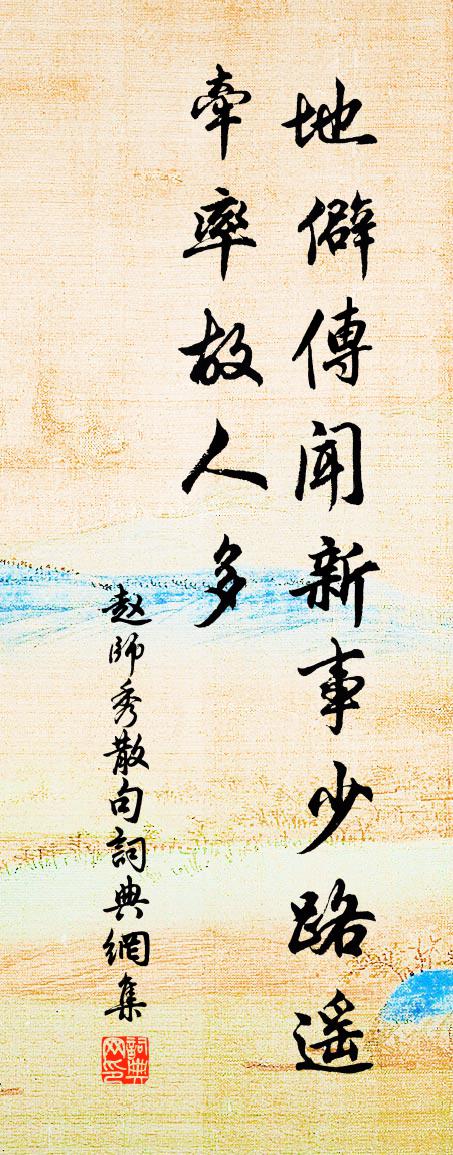 地僻傳聞新事少路遥
牽率故人多
赵師秀散句詞典網集
詞典网印